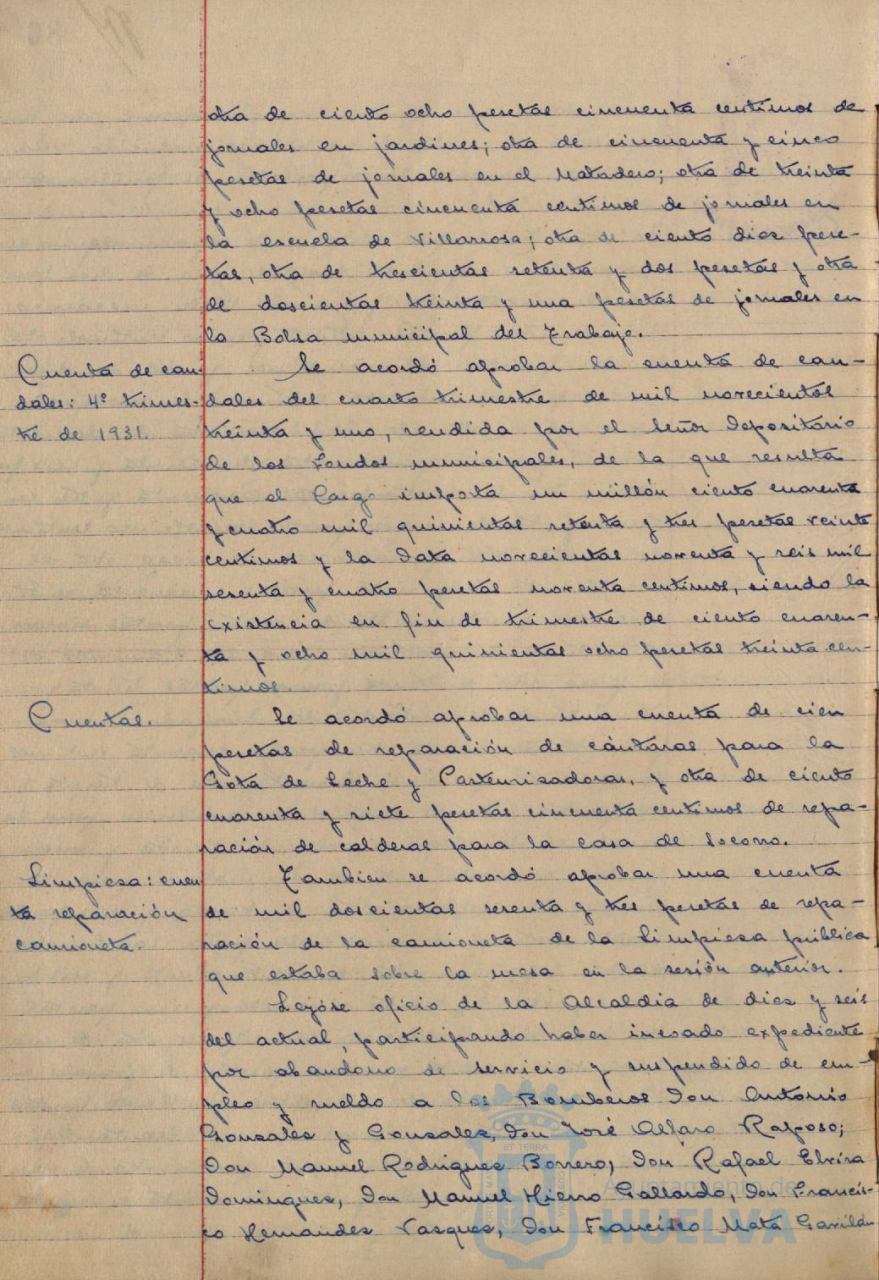 otra de ciento ocho pesetas cincuenta centimos de
jornales en jardines; otra de cincuenta y cinco
pesetas de jornales en el Matadero; otra de treinta
y ocho pesetas cincuenta centimos de jornales en
la escuela de Villarrosa; otra de ciento diez pese-
tas, otra de trescientas setenta y dos pesetas y otra
de doscientas treinta y una pesetas de jornales en
la Bolsa municipal del Trabajo.
Cuenta de cau-
dales: 4º trimes-
tre de 1931.
Se acordó aprobar la cuenta de cau-
dales del cuarto trimestre de mil novecientos
treinta y uno, rendida por el Señor Depositario
de los Fondos municipales, de la que resulta
que el Cargo importa un millón ciento cuarenta
y cuatro mil quinientas setenta y tres pesetas veinte
centimos y la Data novecientas noventa y seis mil
sesenta y cuatro pesetas noventa centimos, siendo la
existencia en fin de trimestre de ciento cuaren-
ta y ocho mil quinientas ocho pesetas treinta cen-
timos.
Cuentas.
Se acordó aprobar una cuenta de cien
pesetas de reparación de cántaras para la
Gota de Leche y Pasteurizadoras, y otra de ciento
cuarenta y siete pesetas cincuenta centimos de repa-
ración de calderas para la casa de Socorro.
Limpieza: cuen
ta reparación
camioneta.
Tambien se acordó aprobar una cuenta
de mil doscientas sesenta y tres pesetas de repa-
ración de la camioneta de la Limpieza pública
que estaba sobre la mesa en la sesión anterior.
Leyóse oficio de la Alcaldia de diez y seis
del actual, participando haber incoado expediente
por abandono de servicio y suspendido de em-
pleo y sueldo a los Bomberos Don Antonio
Gonzalez y Gonzalez, Don José Alfaro Raposo;
Don Manuel Rodriguez Borrero, Don Rafael Elvira
Dominguez, Don Manuel Hierro Gallardo, Don Francis-
co Hernandez Vazquez, Don Francisco Mata Gavilán
Ayuntamiento de
HUELVA